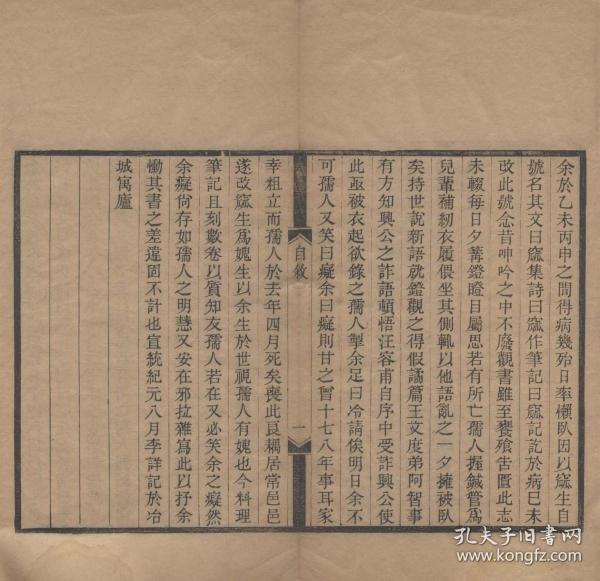 余於乙未丙申之間得病幾殆日率懶臥因以窳生自
號名其文曰窳集詩曰窳作筆記曰窳記訖於病已未
改此號念昔呻吟之中不廢觀書雖至饔飧告匱此志
未輟每日夕篝鐙瞪目屬思若有所亡孺人握鍼管爲
兒輩補紉衣履偎坐其側輒以他語亂之一夕擁被臥
矣持世說新語就鐙觀之得假譎篇王文度弟阿智事
有方知興公之詐語頓悟汪容甫自序中受詐興公使
此亟被衣起欲錄之孺人掣余足曰冷請俟明日余不
可孺人又笑曰癡余曰癡則甘之曾十七八年事耳家
幸粗立而孺人於去年四月死矣喪此良耦居常邑邑
遂改窳生爲媿生以余生於世視孺人有媿也今料理
筆記且刻數卷以質知友孺人若在又必笑余之癡然
余癡尙存如孺人之明慧又安在邪拉雜爲此以抒余
慟其書之差違固不計也宣統紀元八月李詳記於冶
城寓廬
自敘
一
孔夫子旧书网
www.kongfz.com